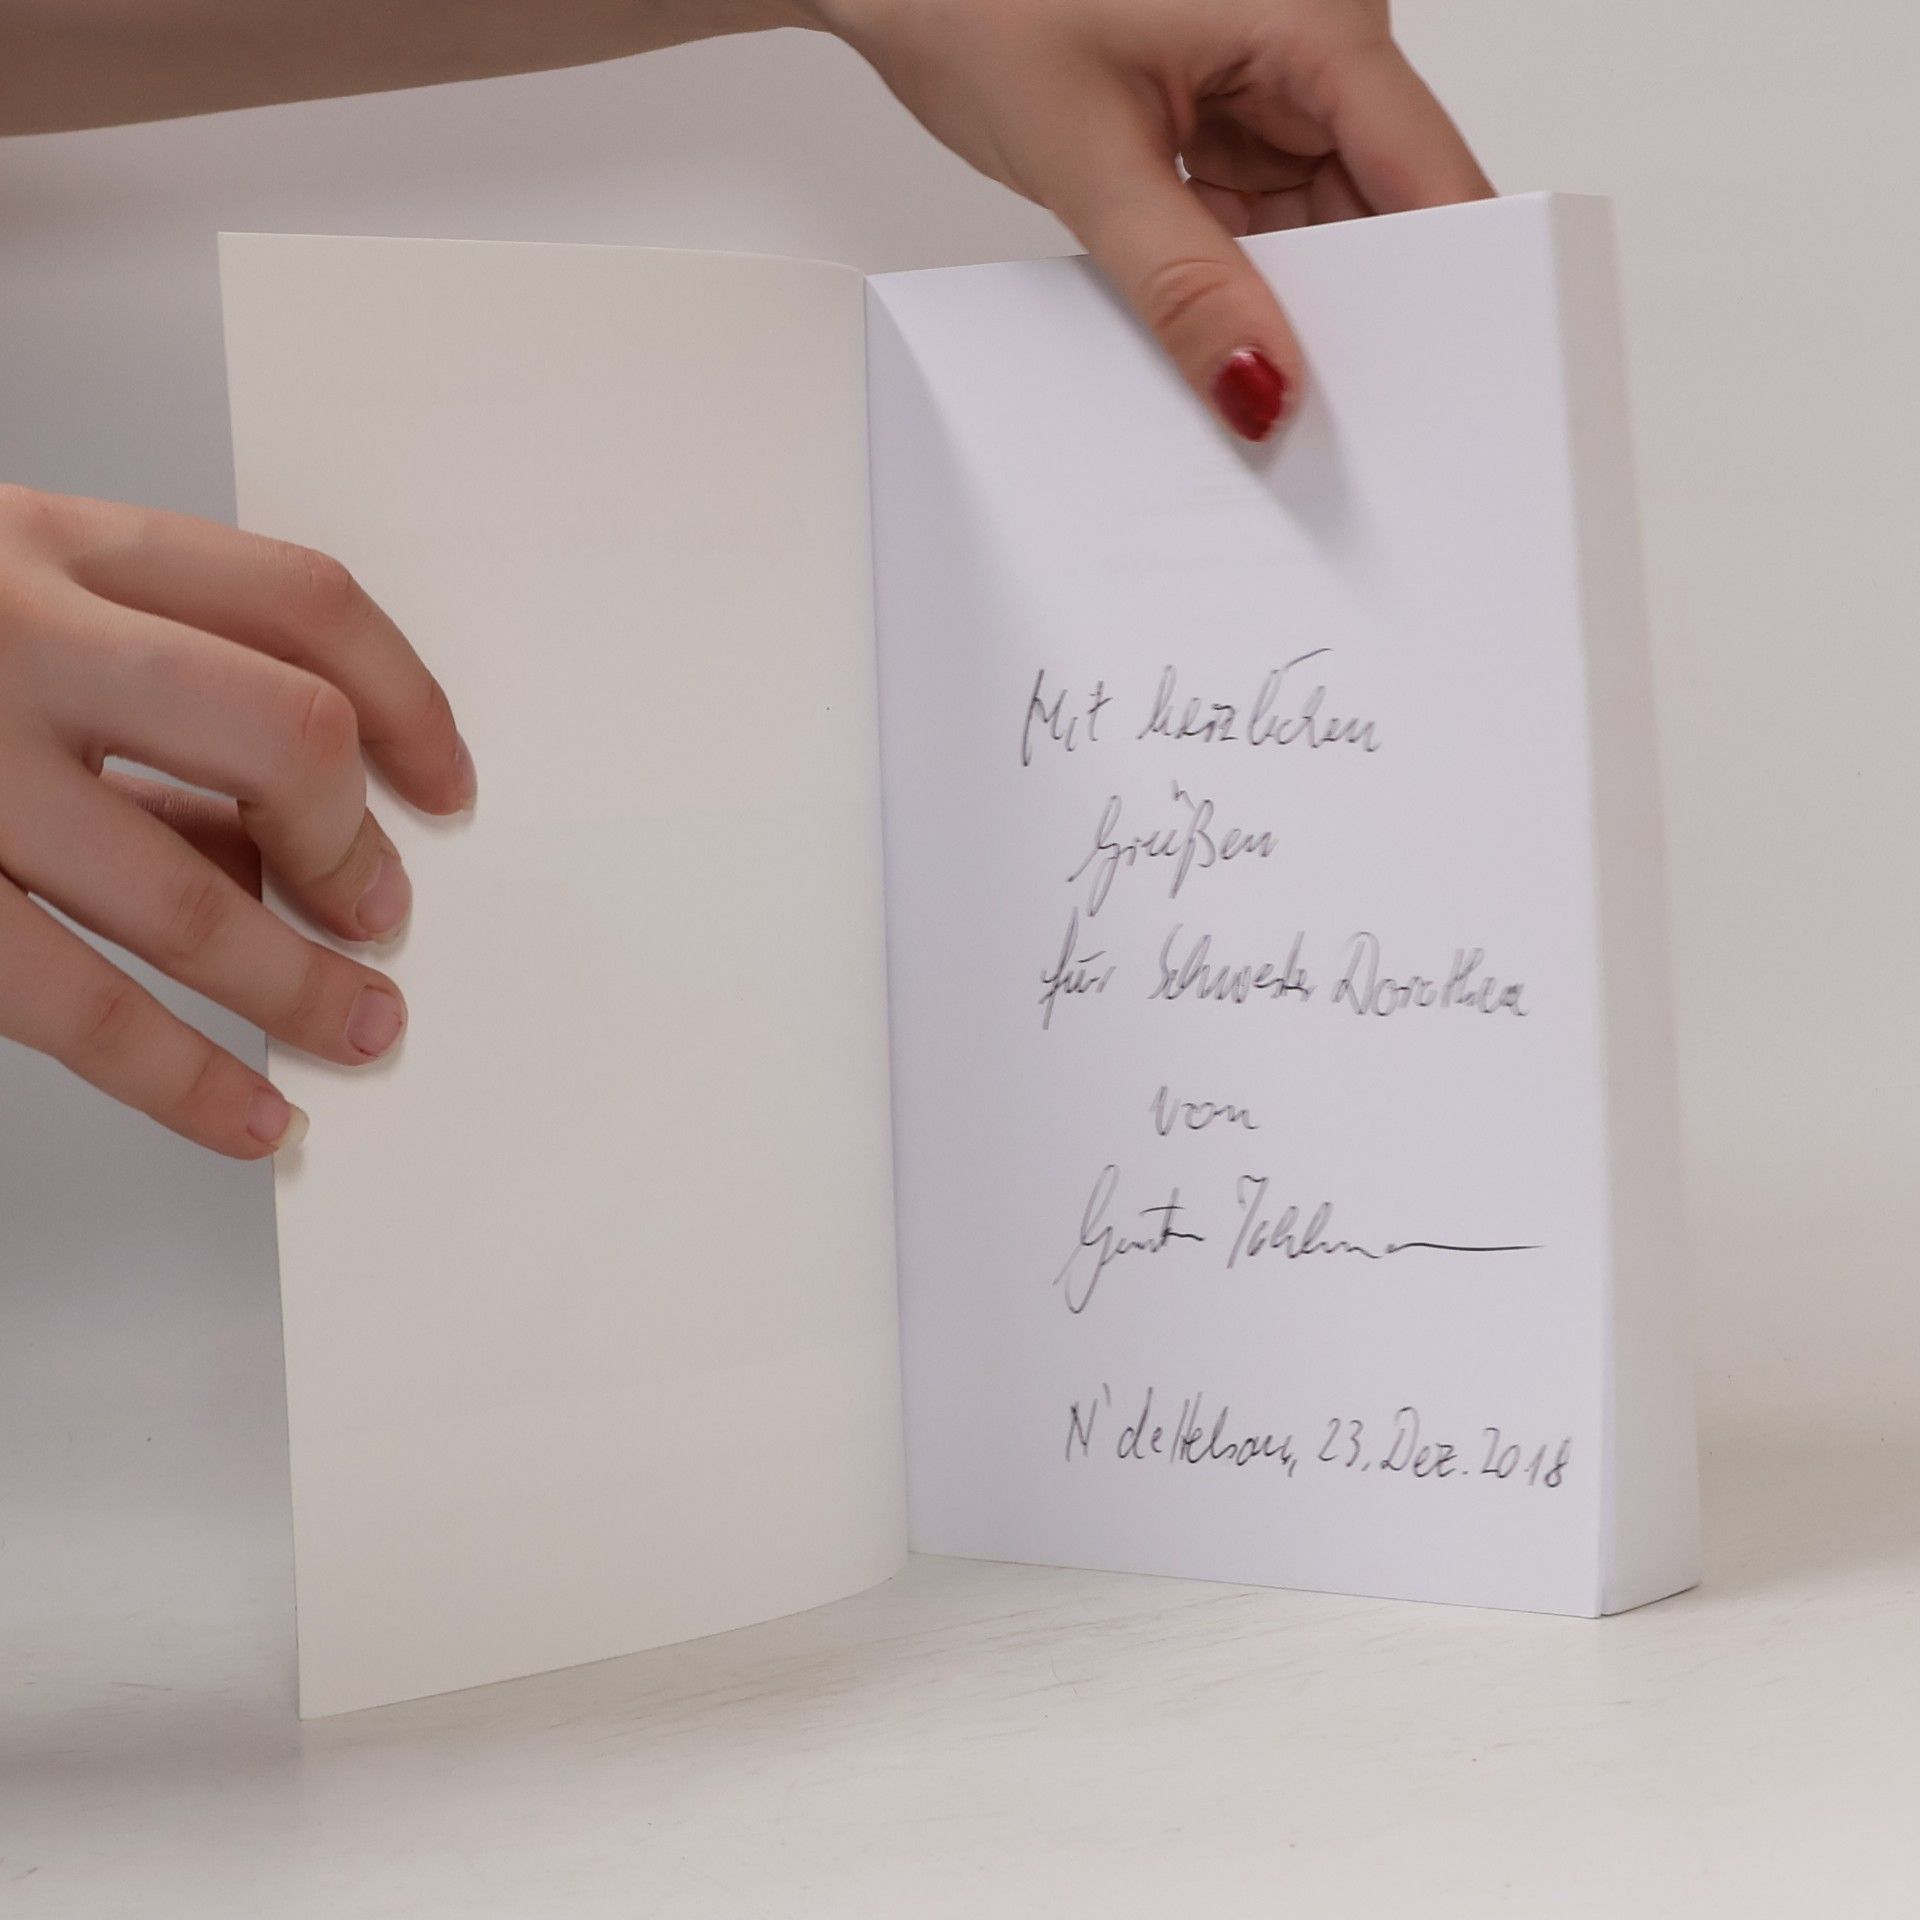 Mit herzlichen
Grüßen
für Schwester Dorothea
von
Gunter
N'dettelsau, 23. Dez. 2018